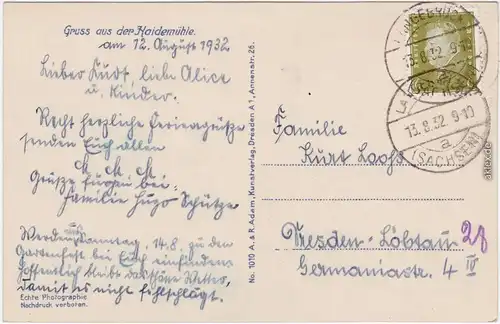 Gruss aus der Haidemühle.
am 12. August 1932
Lieber Kurt, liebe Alice
u. Kinder.
Recht herzliche Feriengrüße
senden Euch allen
M. M. M.
Grüße fügen bei:
Familie Hugo Schütze
Werden Sonntag, 14.8. zu dem
Gartenfest bei Euch einfinden
Hoffentlich bleibt das schöne Wetter,
damit es nicht fehlschlägt.
Echte Photographie.
Nachdruck verboten.
No. 1019 A. & R. Adam, Kunstverlag, Dresden A 1, Annenstr. 26.
13.8.32. 9-10
13.8.32 9-10
a
(SACHSEN)
Familie
Kurt
Dresden-Löbtau 28
Germaniastr. 4 IV
akpool.de